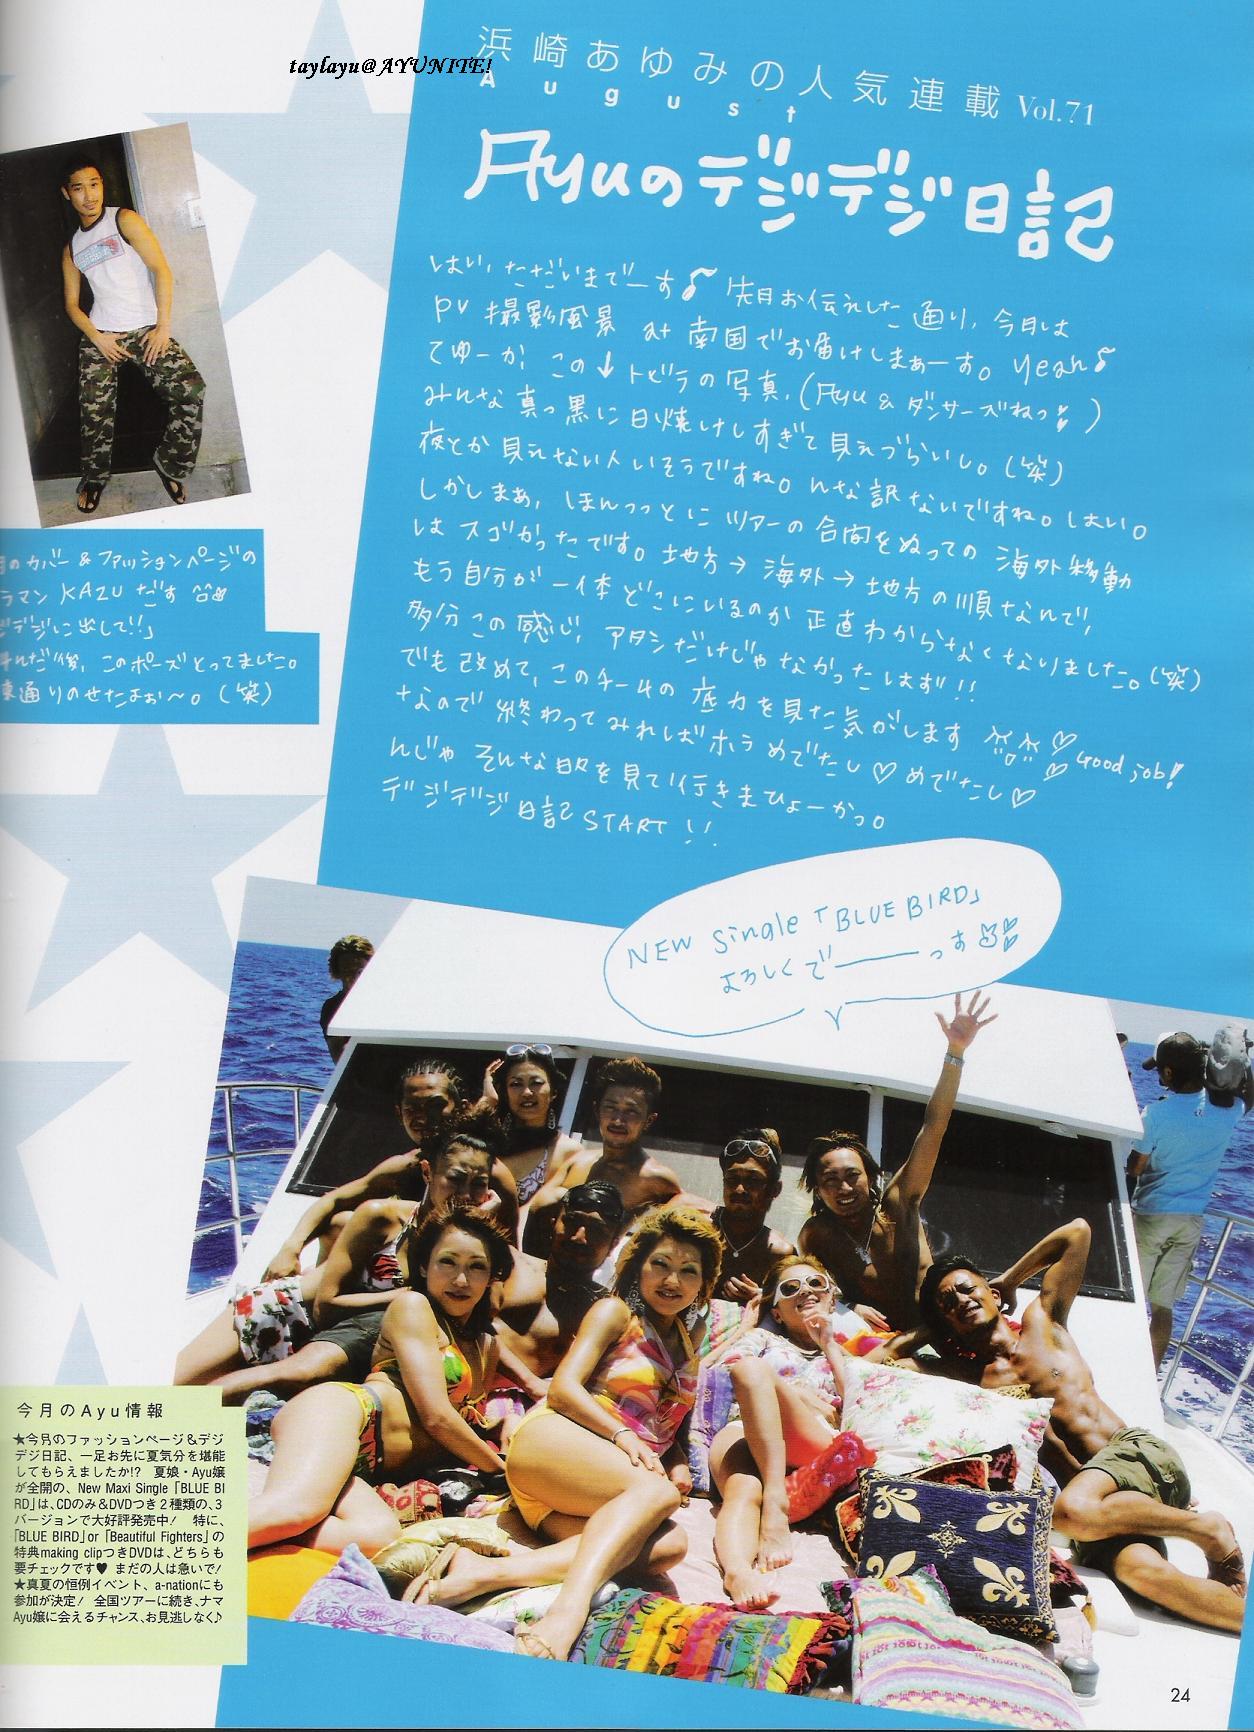 taylayu@AYUNITE!
浜崎あゆみの人気連載 Vol.71
August
Ayuのデジデジ日記
はい、ただいまでーす♪ 先月お伝えした通り、今月は
PV 撮影風景 at 南国でお届けしまぁーす。yeah♪
てゆーか、この↓トビラの写真、(Ayu & ダンサーズねっ!)
みんな真っ黒に日焼けしすぎて見えづらいし。(笑)
夜とか見えない人いそうですね。んな訳ないですね。はい。
しかしまぁ、ほんっっとにツアーの合間をぬっての海外移動
はスゴかったです。地方→海外→地方の順なんで、
もう自分が一体どこにいるのか正直わからなくなりました。(笑)
多分この感じ、アタシだけじゃなかったはず!!
でも改めて、このチームの底力を見た気がします Good job!
なので終わってみればホラめでたし♡めでたし♡
んじゃそんな日々を見て行きまひょーかっ。
デジデジ日記START!!
月のカバー&ファッションページの
ラマン KAZUだす
デジに出して!!」
このポーズとってました。
束通りのせたよぉ〜。(笑)
NEW single「BLUE BIRD」
よろしくで──っす
今月のAyu情報
★今月のファッションページ&デジ
デジ日記、一足お先に夏気分を堪能
してもらえましたか!? 夏娘・Ayu嬢
が全開の、New Maxi Single「BLUE BI
RD」は、CDのみ&DVDつき2種類の、3
バージョンで大好評発売中! 特に、
「BLUE BIRD」or「Beautiful Fighters」の
特典making clipつきDVDは、どちらも
要チェックです♥ まだの人は急いで!
★真夏の恒例イベント、a-nationにも
参加が決定! 全国ツアーに続き、ナマ
Ayu嬢に会えるチャンス、お見逃しなく♪
24